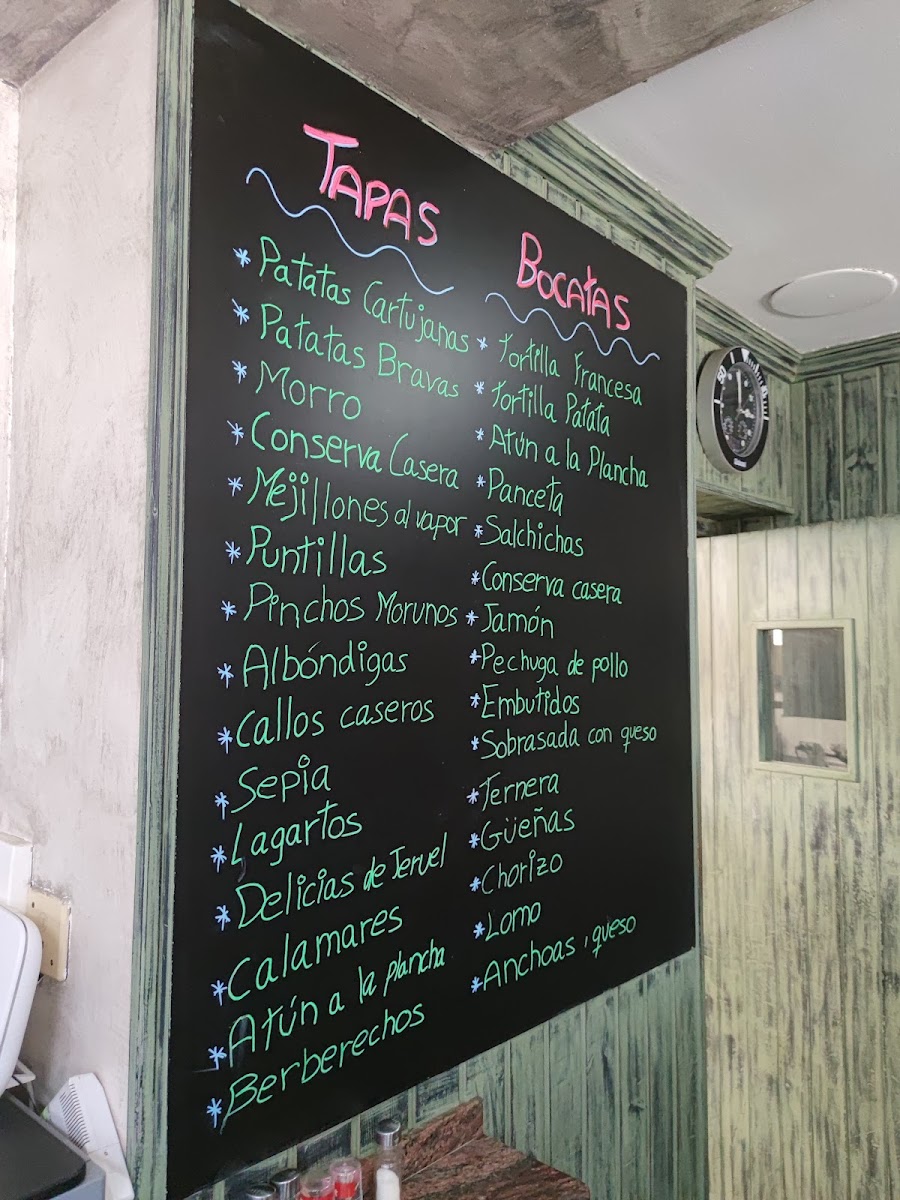 TAPAS
* Patatas Cartujanas
* Patatas Bravas
* Morro
* Conserva Casera
* Mejillones al vapor
* Puntillas
* Pinchos Morunos
* Albóndigas
* Callos caseros
* Sepia
* Lagartos
* Delicias de Teruel
* Calamares
* Atún a la plancha
* Berberechos
BOCATAS
* Tortilla Francesa
* Tortilla Patata
* Atún a la Plancha
* Panceta
* Salchichas
* Conserva casera
* Jamón
* Pechuga de pollo
* Embutidos
* Sobrasada con queso
* Ternera
* Güeñas
* Chorizo
* Lomo
* Anchoas, queso